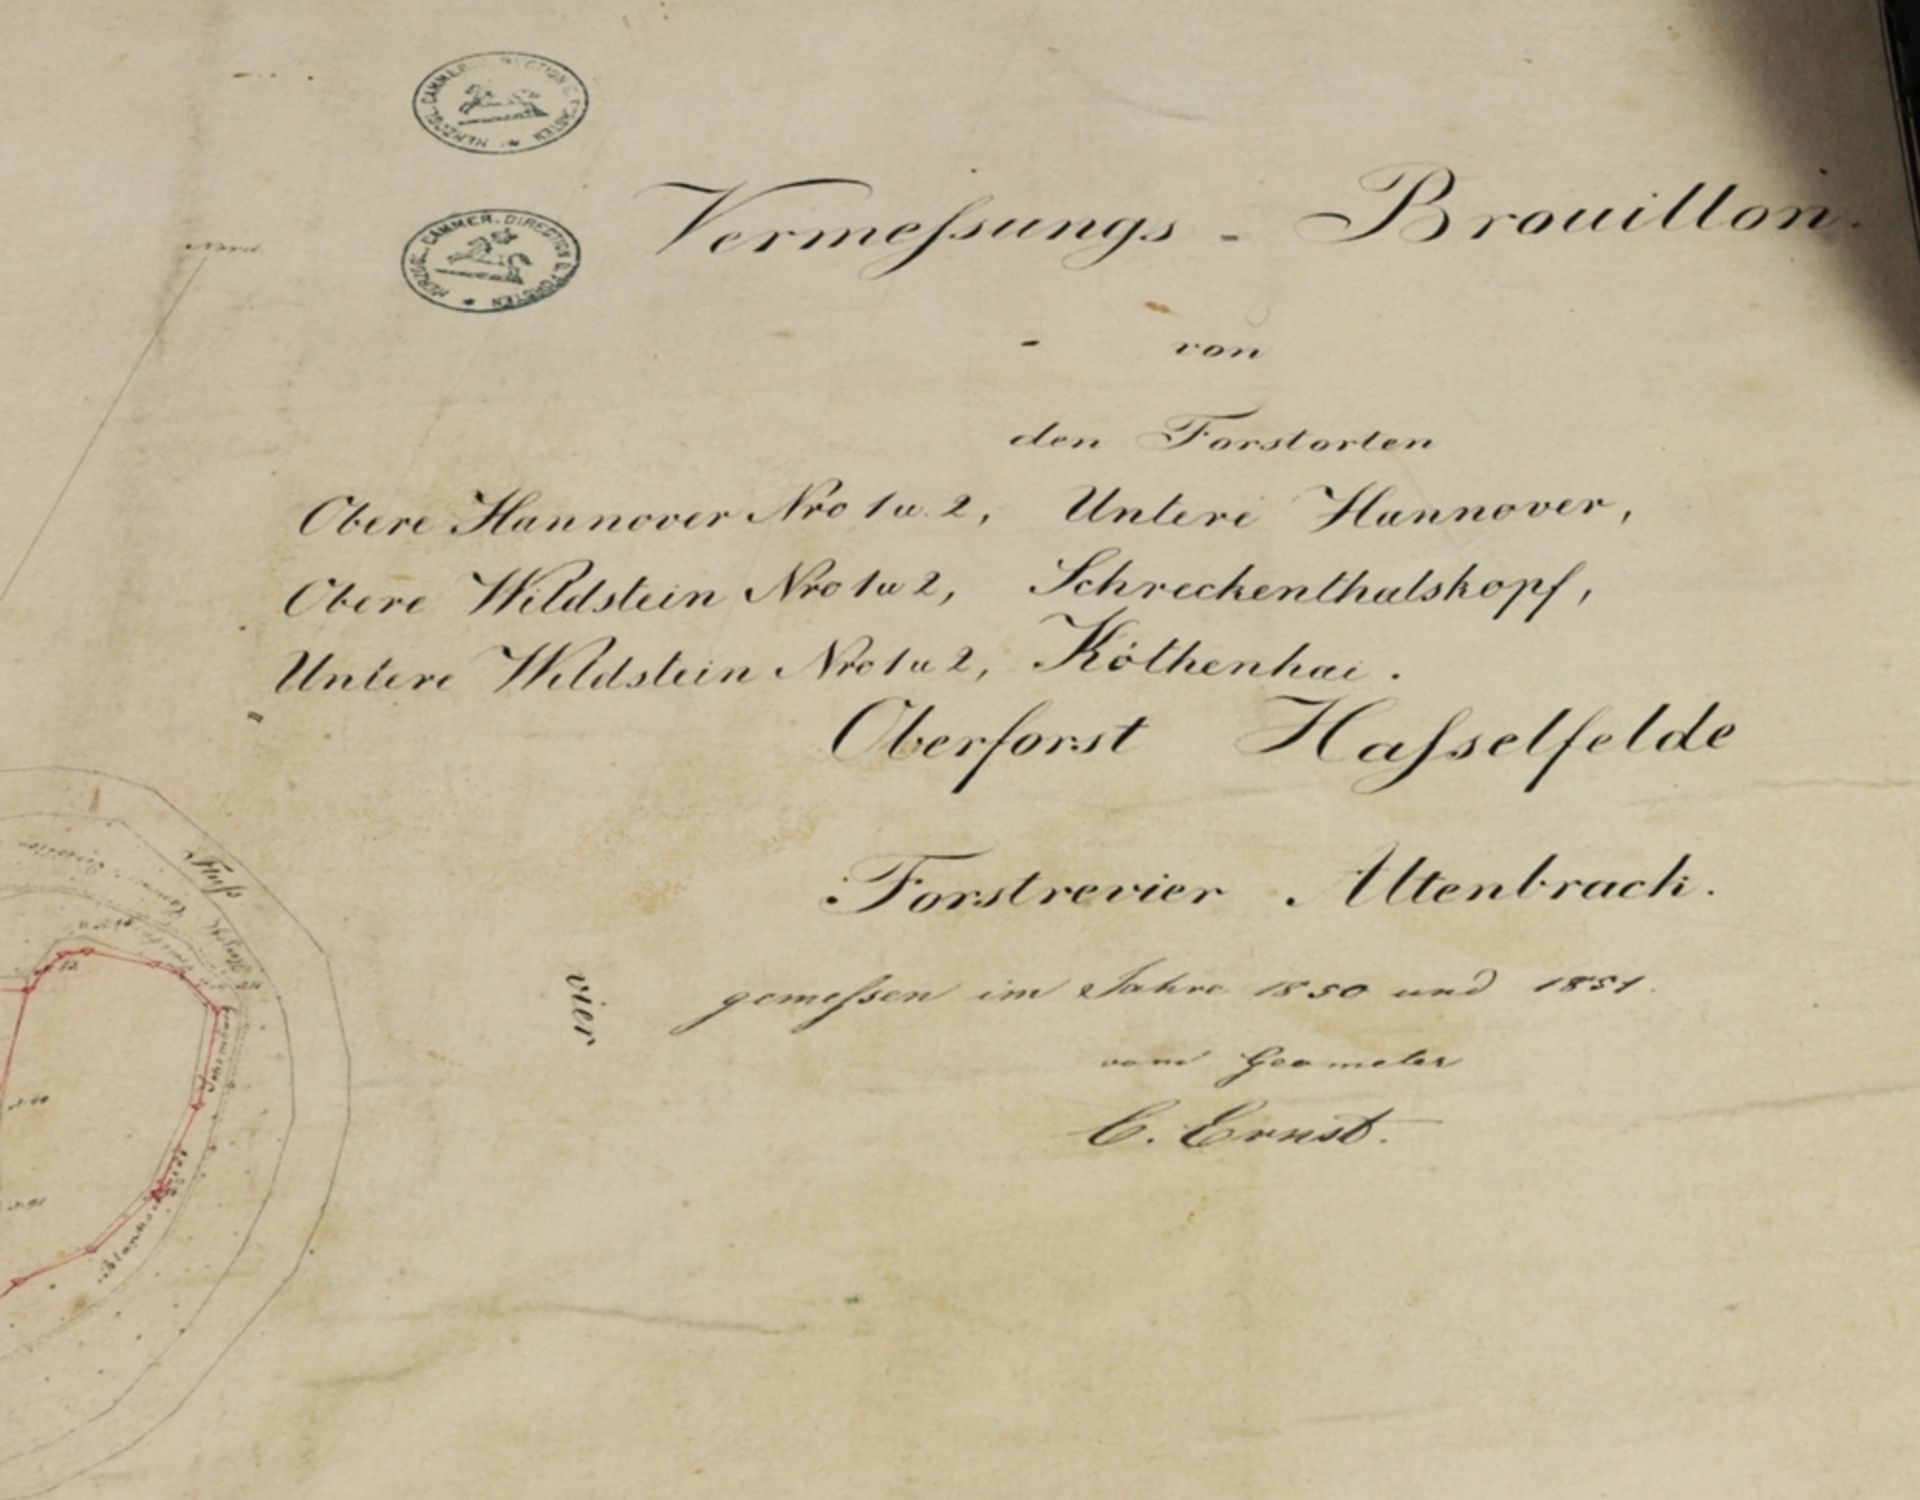 HERZOGL. CAMMER. DIRECTION D. FORSTEN
HERZOGL. CAMMER. DIRECTION D. FORSTEN
Nord
Vermeſsungs - Brouillon.
von
den Forstorten
Obere Hannover Nro 1 u. 2, Untere Hannover,
Obere Wildstein Nro 1 u 2, Schreckenthalskopf,
Untere Wildstein Nro 1 u 2, Köthenhai.
Oberforst Haſselfelde
Forstrevier Altenbrack.
gemeſsen im Jahre 1850 und 1851.
vom Geometer
C. Ernst.
vier
Fluſs